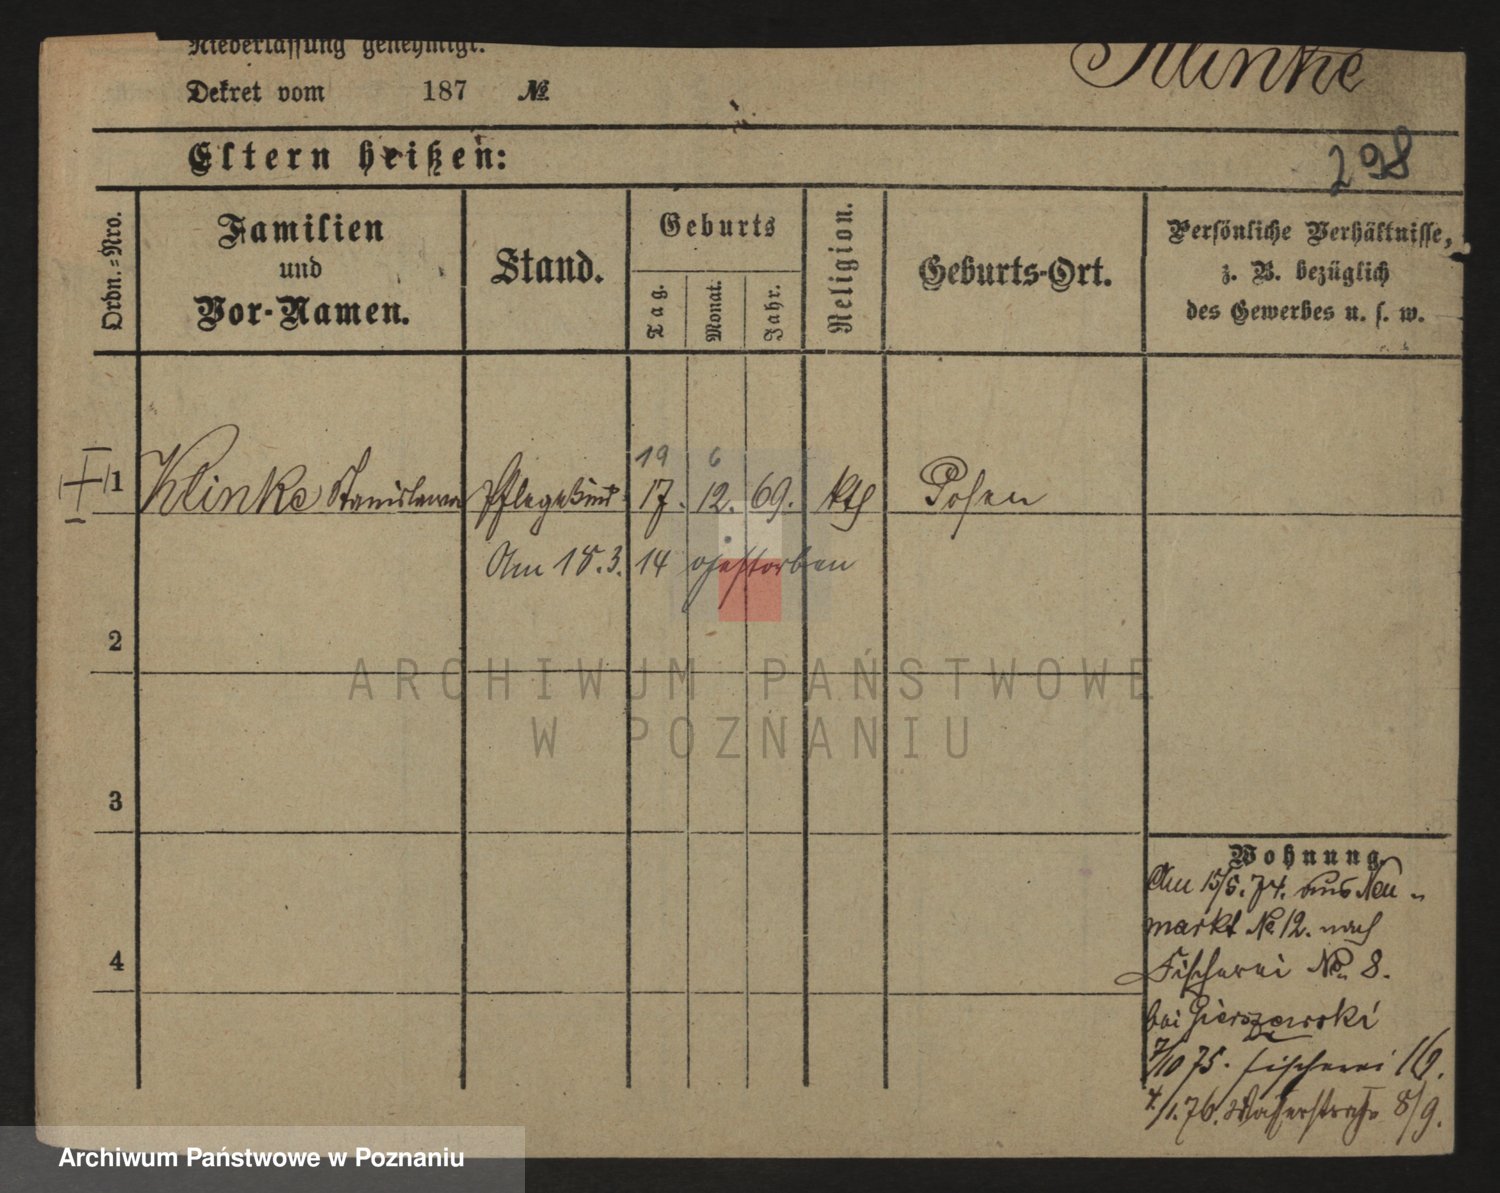 Niederlassung genehmigt.
Dekret vom 187 №
Klinke
Eltern heißen:
298
Ordn.=Nro.
Familien
und
Vor-Namen.
Stand.
Geburts
Tag.
Monat.
Jahr.
Religion.
Geburts-Ort.
Persönliche Verhältnisse,
z. B. bezüglich
des Gewerbes u. s. w.
19 6
1 Klinke Stanislawa Pflegekind 17. 12. 69. kth Posen
Am 18.3. 14 gestorben
2
ARCHIWUM PAŃSTWOWE
W POZNANIU
3
4
Wohnung.
Am 15/6. 74. aus Neu-
markt No 12. nach
Fischerei No. 8.
bei Gierszewski
7/10 75. Fischerei 16.
4/1. 76. Wasserstraße 8/9.
Archiwum Państwowe w Poznaniu